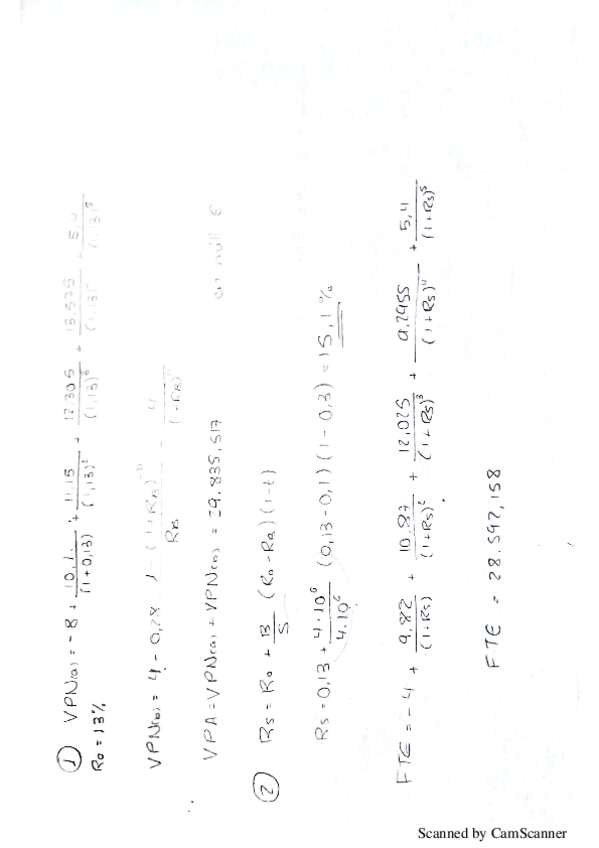 ① VPN(a) = -8 + 10,1/(1+0,13) + 11,15/(1,13)² + 12.305/(1,13)³ + 13.575/(1,13)⁴ + 5,4/(1,13)⁵
R₀ = 13%
VPN(b) = 4 - 0,28 1-(1+RB)⁻⁴/RB - 4/(1+RB)⁴
VPA = VPN(a) + VPN(b) = 29.835,517 en mill €
② Rs = R₀ + B/S (R₀ - RB)(1-t)
Rs = 0,13 + 4·10⁶/4·10⁶ (0,13-0,1)(1-0,3) = 15,1%
FTE = -4 + 9,82/(1+Rs) + 10,87/(1+Rs)² + 12,025/(1+Rs)³ + 9,2955/(1+Rs)⁴ + 5,4/(1+Rs)⁵
FTE = 28.592,158
Scanned by CamScanner